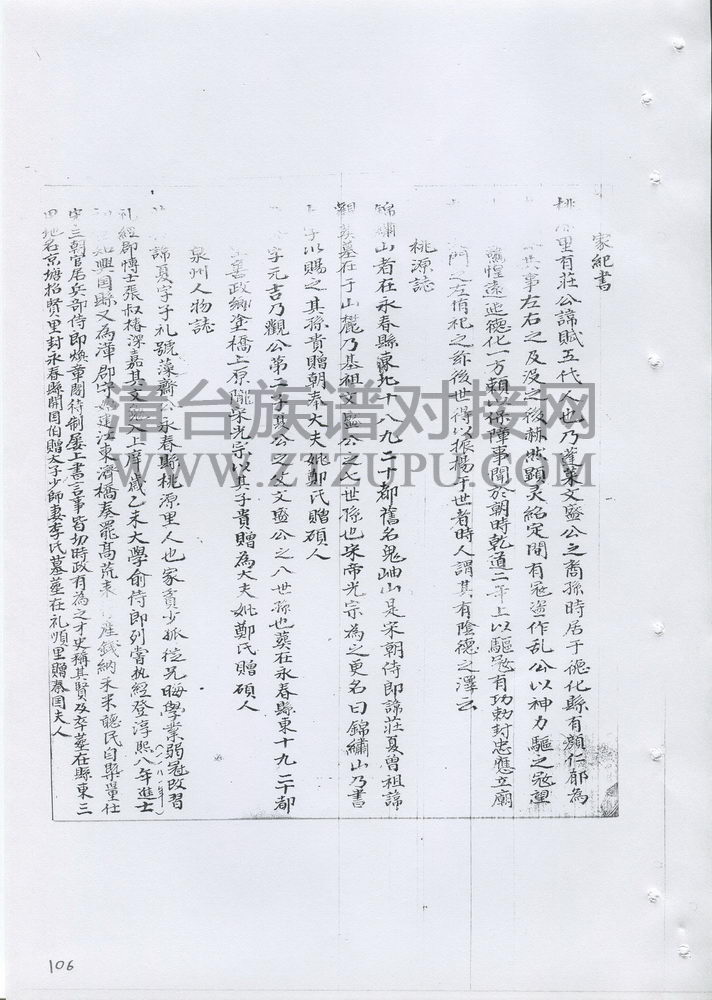 家紀書
里有莊公諱賦五代人也乃蓬萊文盛公之裔孫時居于德化縣有顏仁郁為
其事左右之及没之後赫然顯灵紹定間有冠盗作乱公以神力驅之冠望
惶遠遁德化一方賴保障事聞於朝時乾道二年上以驅冠有功勅封忠應立廟
門之左侑祀之郁後世得以振揚于世者時人謂其有陰德之澤云
桃源誌
錦繡山者在永春縣東北十八九二十都舊名鬼岫山是宋朝侍郎諱莊夏曾祖諱
觀葵墓在于山麓乃基祖文盛公之七世孫也宋帝光宗為之更名曰錦繡山乃書
字以賜之其孫貴贈朝奉大夫妣鄭氏贈碩人
字元吉乃觀公第二子其公之父文盛公之八世孫也葵在永春縣東十九二十都
善政鄉金橋上原隴宋光宗以其子貴贈為大夫妣鄭氏贈碩人
泉州人物誌
諱夏字子礼號藻齋公永春縣桃源里人也家貧少孤從兄晦學業弱冠改習
礼經郡博士張叔椿深嘉其文經之上庠歲乙未大學俞侍郎列嘗执經登淳熙八年進士
(一一八一年)
知興国縣又為漳郡守 造江東濟橋奏罷高荒表 產錢納禾米聽民自槩量仕
宋三朝官居兵部侍郎煥章閣待制屡上書言事皆切時政有為之才史稱其賢及卒墓在縣東三
里地名京塘招賢里封永春縣開国伯贈太子少師妻李氏墓墓在礼順里贈秦国夫人
津台族谱对接网
WWW.ZTZUPU.COM
106